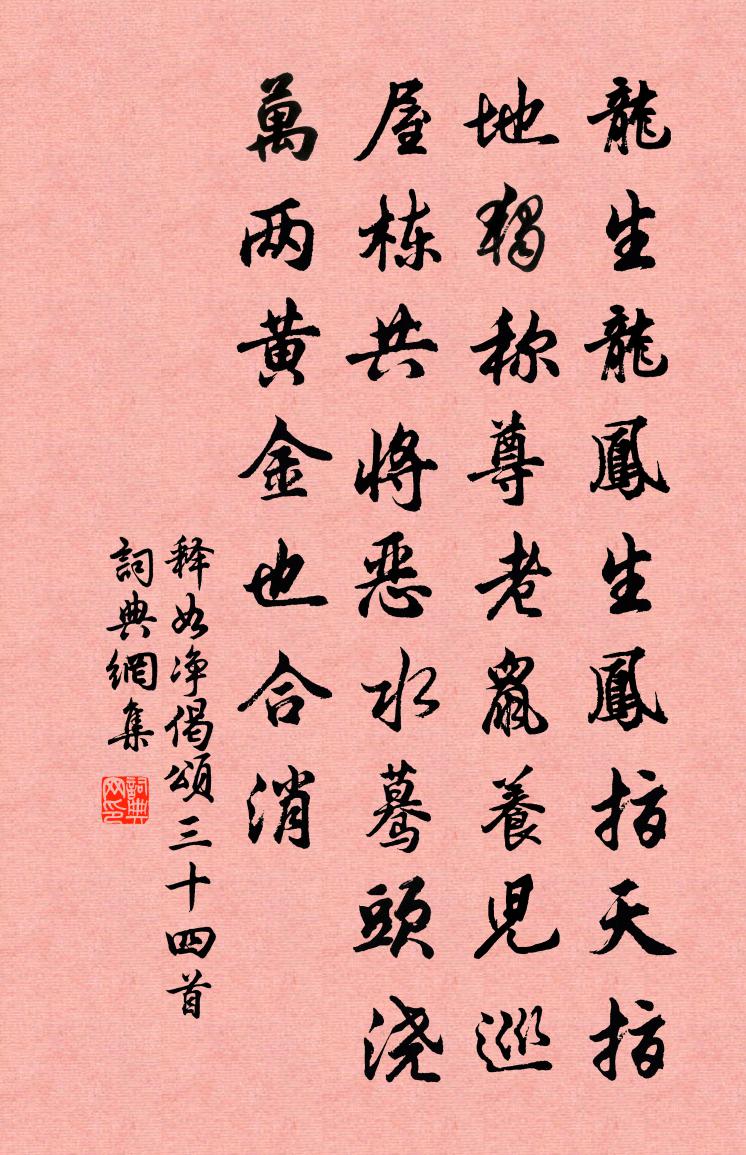 龍生龍鳳生鳳指天指
地獨称尊老鼠養児巡
屋栋共将恶水蓦頭浇
萬两黄金也合消
释如净偈頌三十四首
詞典網集
詞典网印